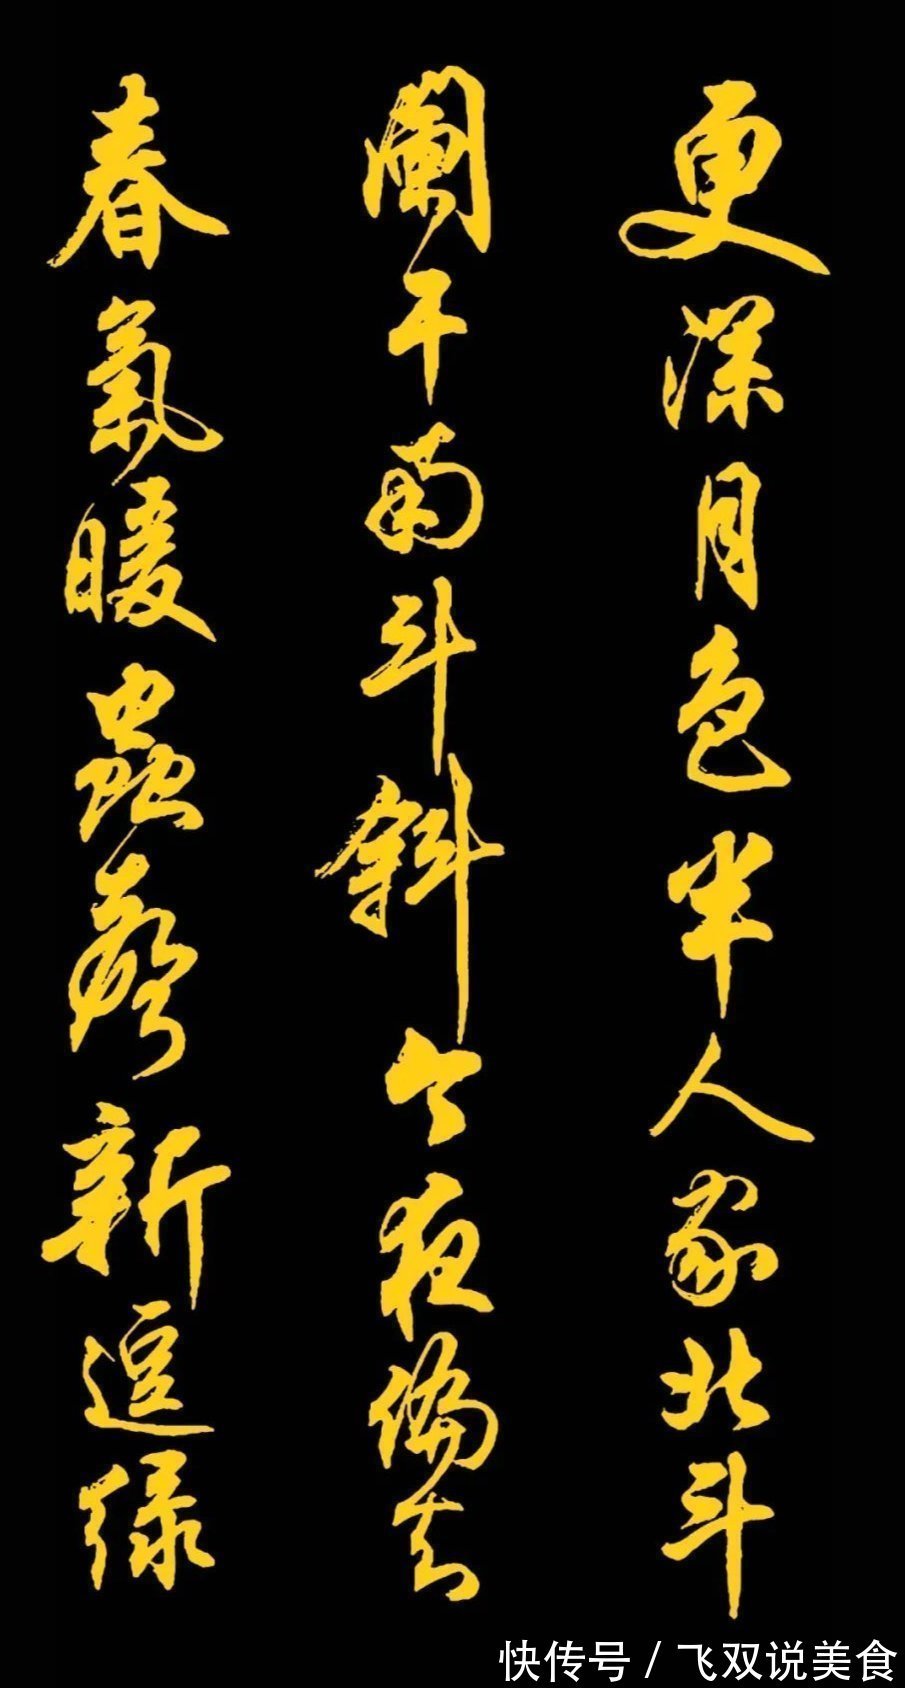 更深月色半人家北斗
闌干南斗斜今夜偏知
春氣暖蟲聲新逗綠
快传号 / 飞双说美食